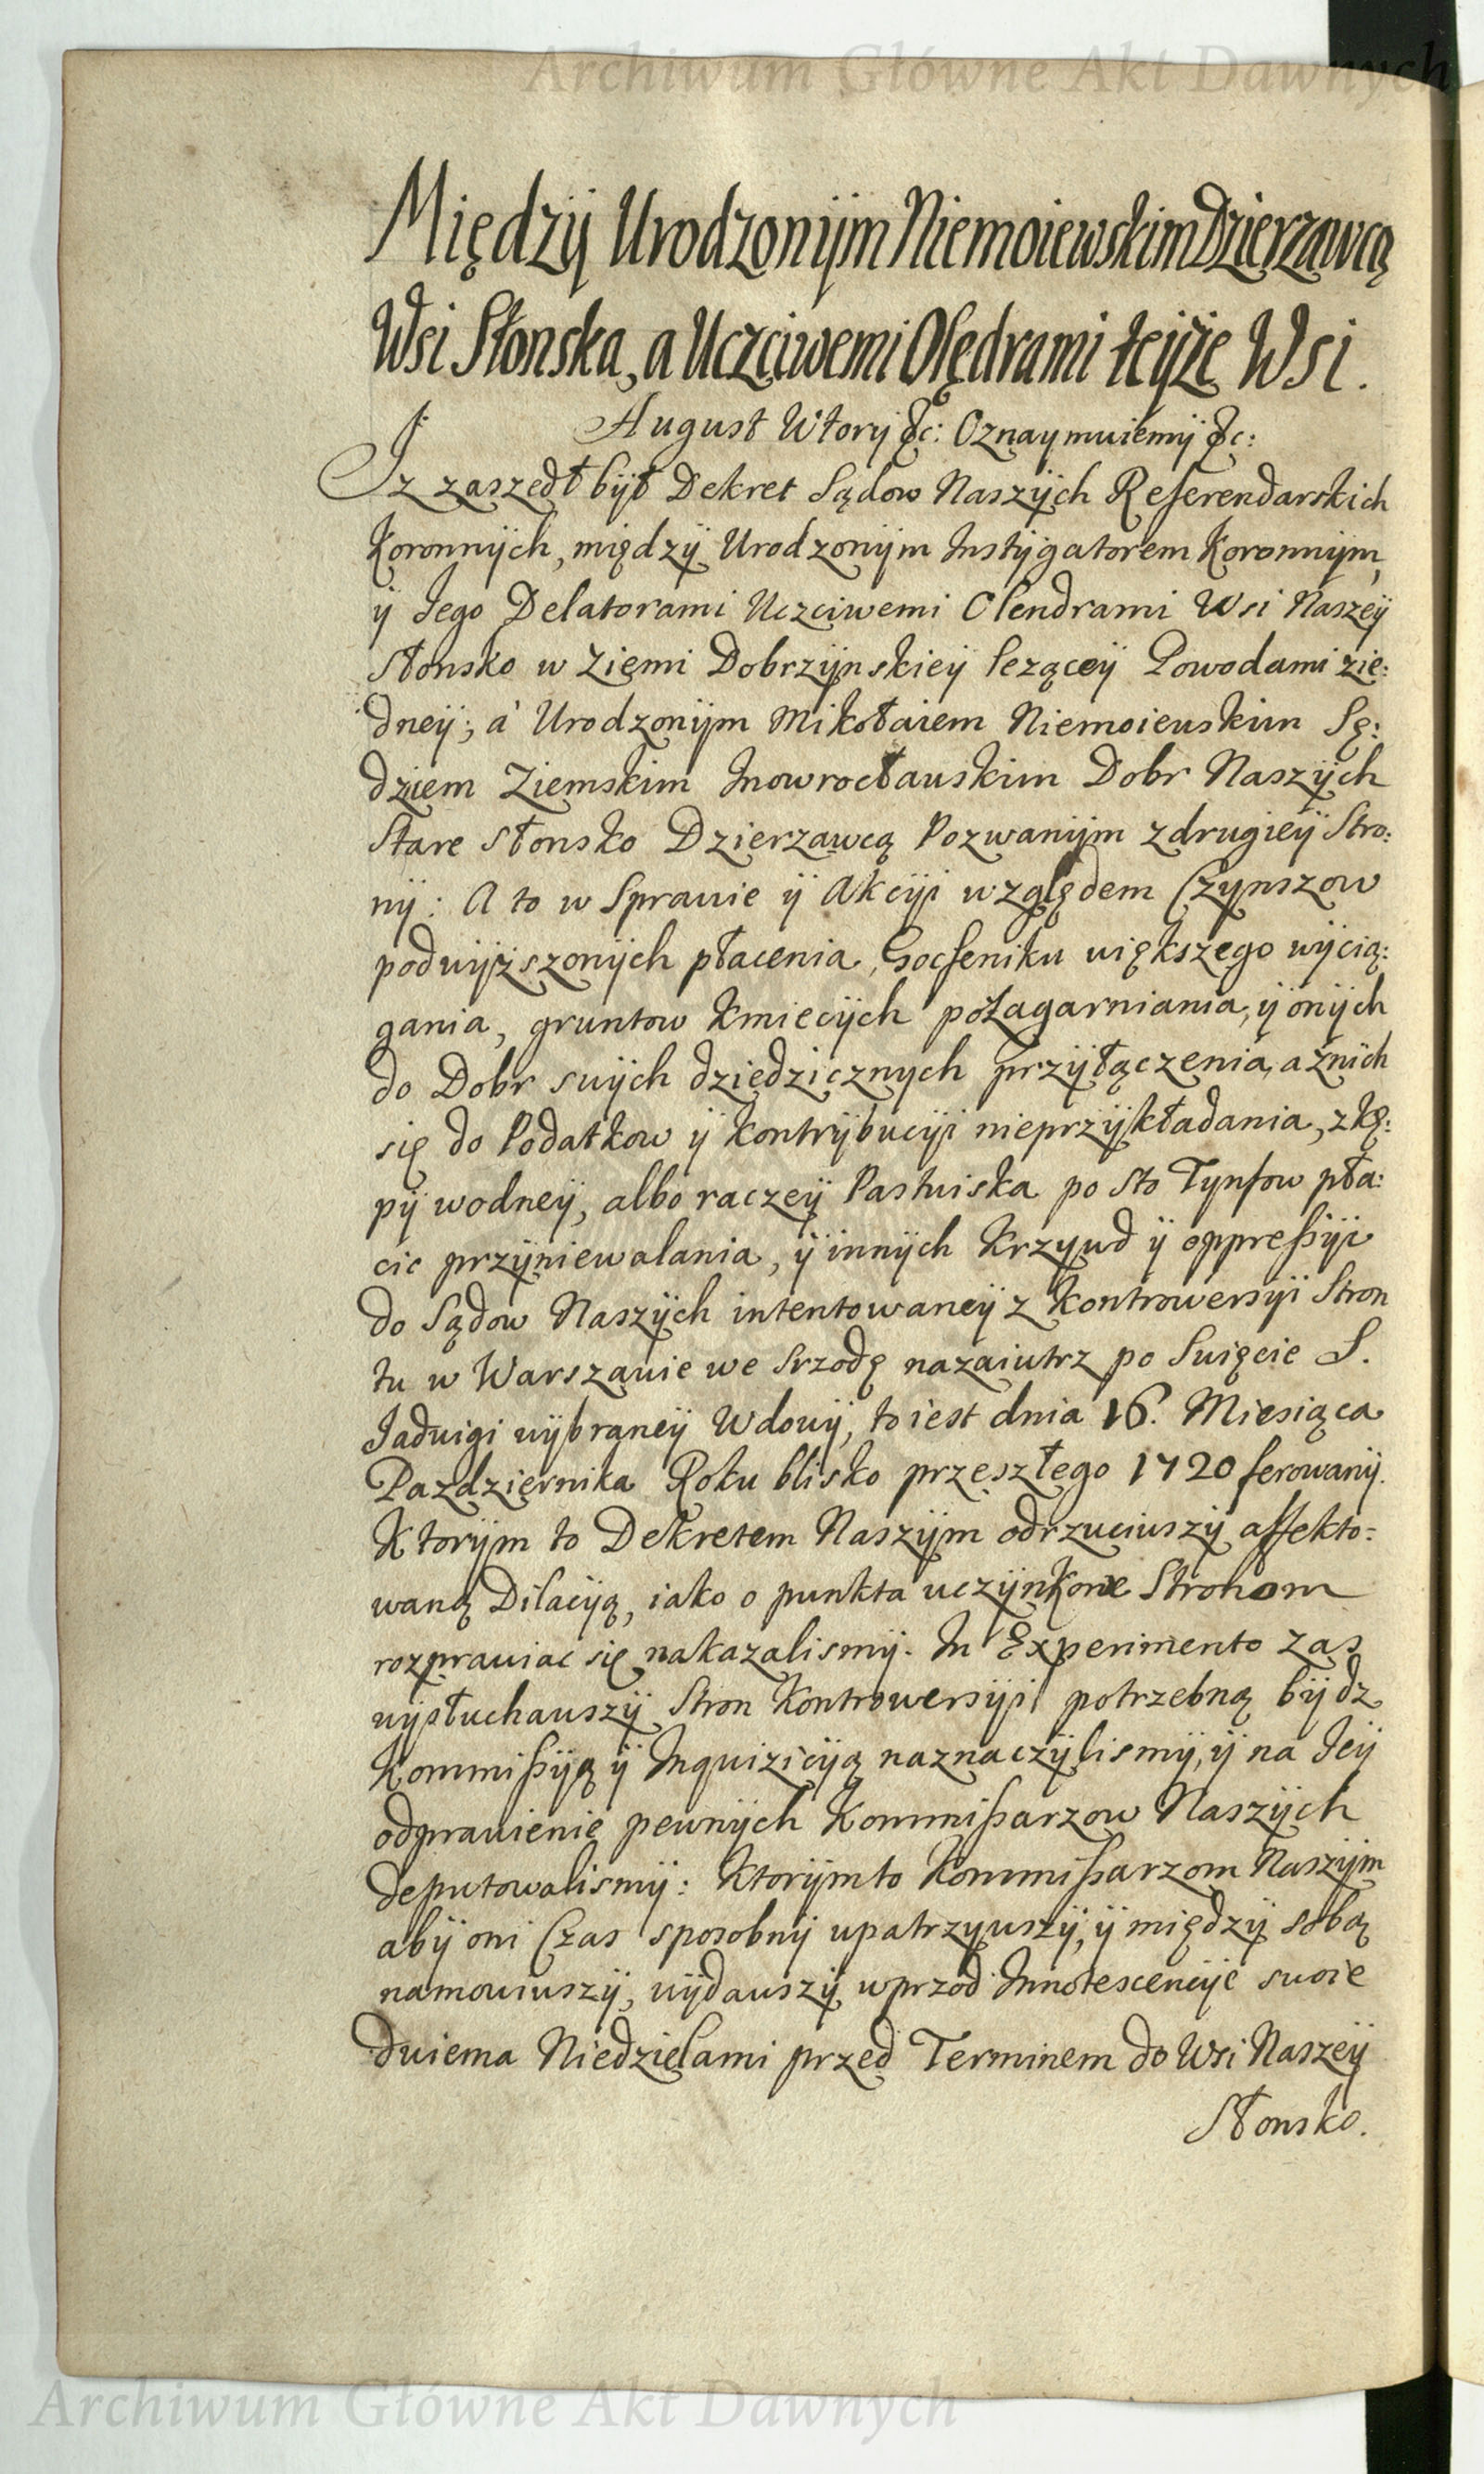 Archiwum Główne Akt Dawnych
Międzÿ Urodzonÿm Niemoiewskim Dzierzawcą
Wsi Słonska, a Uczciwemi Olędrami teÿże Wsi.
August Wtorÿ &c: Oznaymuiemÿ &c:
Iz zaszedł bÿł Dekret Sądow Naszÿch Referendarskich
Koronnÿch, międzÿ Urodzonÿm Instÿgatorem Koronnÿm,
ÿ Jego Delatorami Uczciwemi Olendrami Wsi Naszeÿ
Słonsko w Ziemi Dobrzÿnskieÿ leząceÿ Powodami zie:
dneÿ; a Urodzonÿm Mikołaiem Niemoiewskim Sę:
dziem Ziemskim Inowrocławskim Dobr Naszÿch
Stare Słonsko Dzierzawcą Pozwanÿm z drugieÿ Stro:
nÿ: A to w Sprawie ÿ Akcÿi względem Czÿnszow
podwÿższonÿch płacenia, Gocseniku większego wÿcią:
gania, gruntow Kmiecÿch pozagarniania, ÿ onÿch
do Dobr swÿch dziedzicznych przÿłączenia, a znich
się do Podatkow ÿ Kontrÿbucÿi nieprzÿkładania, z kę:
pÿ wodneÿ, albo raczeÿ Pastwiska po sto Tÿnfow pła:
cic przÿniewalania, ÿ innÿch Krzywd ÿ oppreßÿi
do Sądow Naszÿch intentowaneÿ z Kontrowersÿi Stron
tu w Warszawie we Srzodę nazaiutrz po Swięcie S.
Jadwigi wÿbraneÿ Wdowÿ, to iest dnia 16. Miesiąca
Pazdziernika Roku blisko przeszłego 1720 ferowanÿ.
Ktorÿm to Dekretem Naszÿm odrzuciwszÿ affekto=
waną Dilacÿą, iako o punkta uczÿnkowe Stronom
rozprawiac się nakazalismÿ. In Experimento zas
wÿsłuchawszÿ Stron Kontrowersÿi potrzebną bÿdz
Kommißÿą ÿ Inquizicÿą naznaczÿlismÿ, ÿ na Jeÿ
odprawienie pewnÿch Kommißarzow Naszÿch
deputowalismÿ: Ktorÿmto Kommißarzom Naszÿm
abÿ oni Czas sposobnÿ upatrzÿwszÿ, ÿ międzÿ sobą
namowiwszÿ, wÿdawszÿ wprzod Innotescencÿe swoie
dwiema Niedzielami przed Terminem do Wsi Naszeÿ
Słonsko.
Archiwum Główne Akt Dawnych